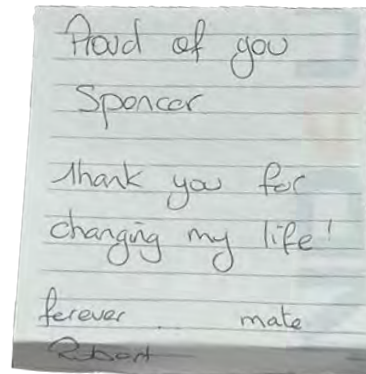 Proud of you
Spencer
Thank you for
changing my life!
forever .. mate
Robert